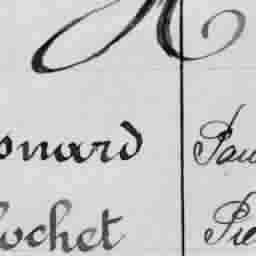 snard Pau
ochet Pie